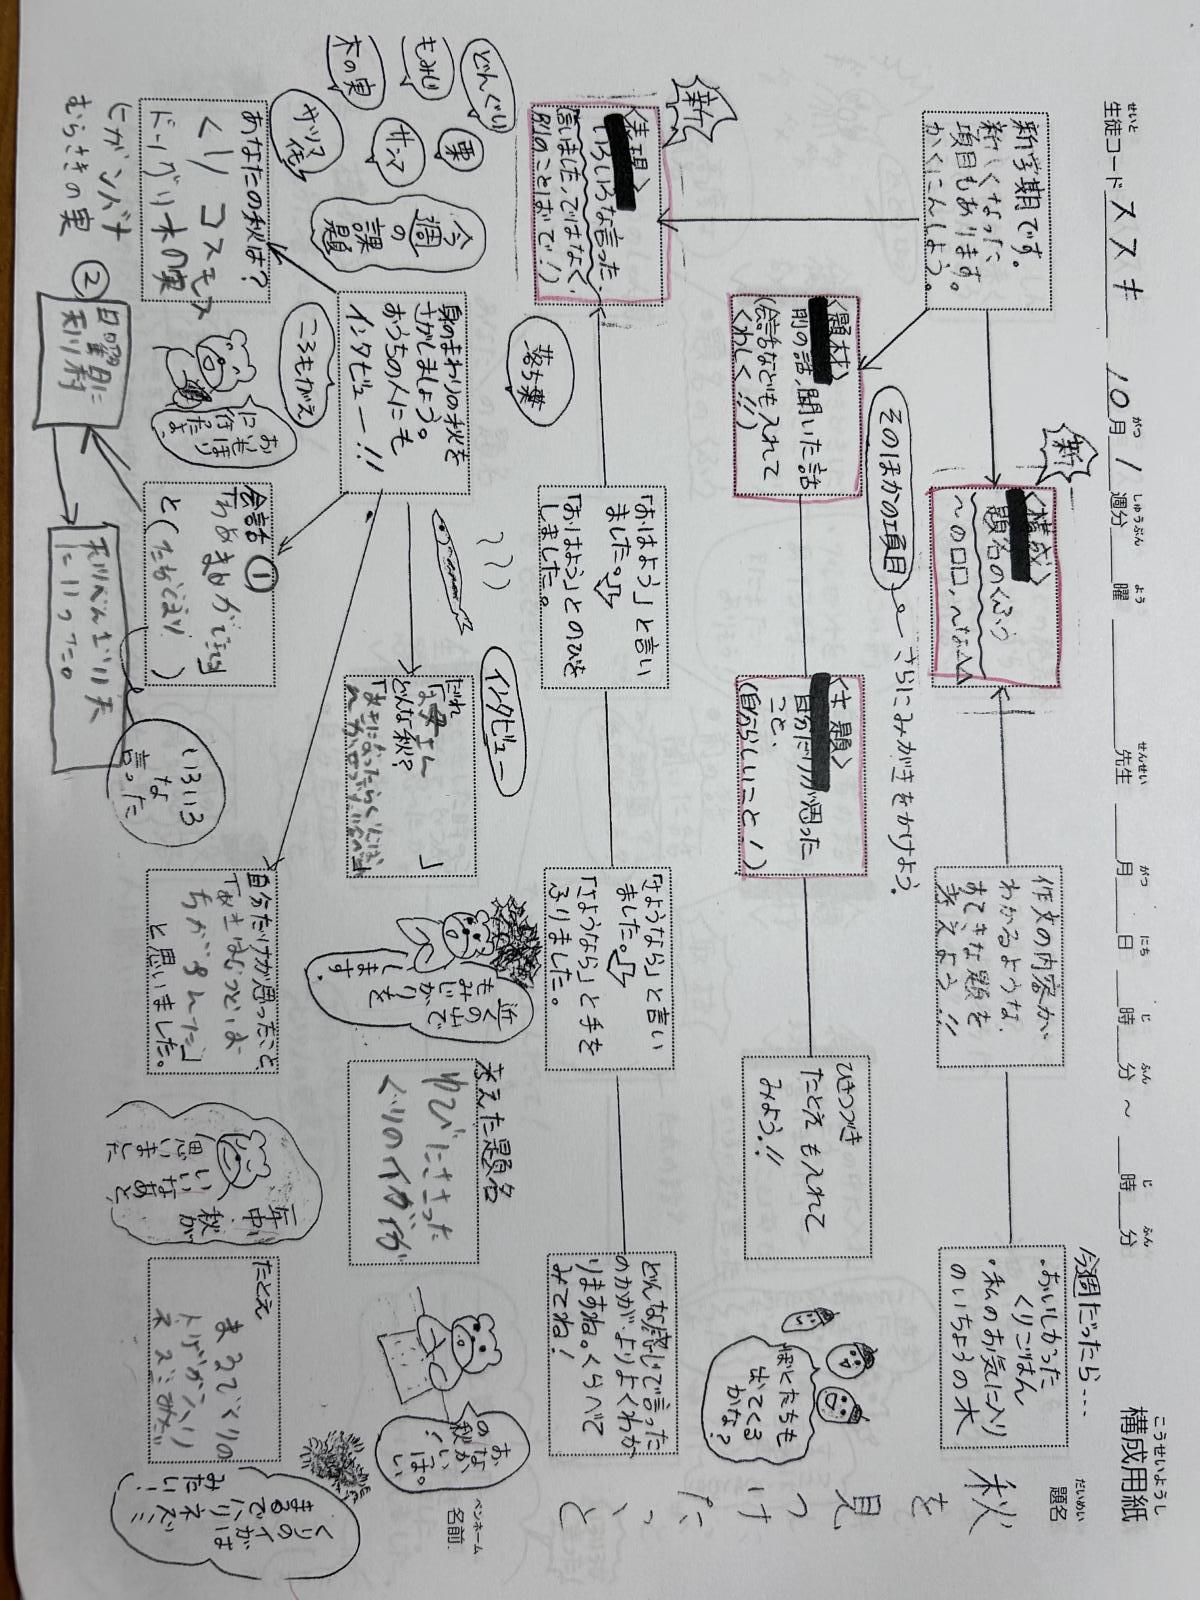 構成用紙
こうせいようし
生徒コード ススキ 10月 1週分 曜 先生 月 日 時 分 ~ 時 分
せいと がつ しゅうぶん よう せんせい がつ にち じ ふん じ ふん
題名
だいめい
秋を見つけたいっと
ペンホーム
名前
新学期です。
新しくなった
項目もあります。
かくにんしよう。
新
<構成>
題名のくふう
~の口口、~な△△
作文の内容が
わかるような、
すてきな題を
考えよう!!
今週だったら…
・おいしかった
くりごはん
・私のお気に入り
のいちょうの木
そのほかの項目
さらにみがきをかけよう。
<題材>
前の話、聞いた話
(会話なども入れて
くわしく!!)
<主題>
自分だけが思った
こと、
(自分らしいこと!)
ひきつづき
たとえも入れて
みよう!!
ぼくたちも
出てくる
かな?
新
<表現>
いろいろな言った、
言いました、ではなく、
別のことばで!)
「おはよう」と言い
ました。
「おはよう」とのびを
しました。
「さようなら」と言い
ました。
「さようなら」と手を
ふりました。
どんな感じで言った
のかが、よりよくわか
りますね。くらべて
みてね!
どんぐり
もみじ
木の実
栗
サンマ
サツマ
落ち葉
ころもがえ
今週
の
課題
身のまわりの秋を
さがしましょう。
おうちの人にも
インタビュー!!
インタビュー
だれ
お母さん
どんな秋?
近
くの山で
もみじ
がりを
します。
考えた題名
ゆびにささった
くりのイガ
お
なか
の
秋
いっぱい
は。
あなたの秋は?
くり コスモス
ドングリ木の実
ヒガンバナ
むらさきの実
おいも
ほり
に
行っ
たよ
会話
①
と( )
②
日曜日に
にいった。
いろいろ
な
言った
自分だけが思ったこと
と思いました。
一年
中、
秋が
いいなあと、
思いました
たとえ
まるでくりの
トゲがハリ
ネズミみたい
くりのイガは
まるでハリネズミ
みたい!